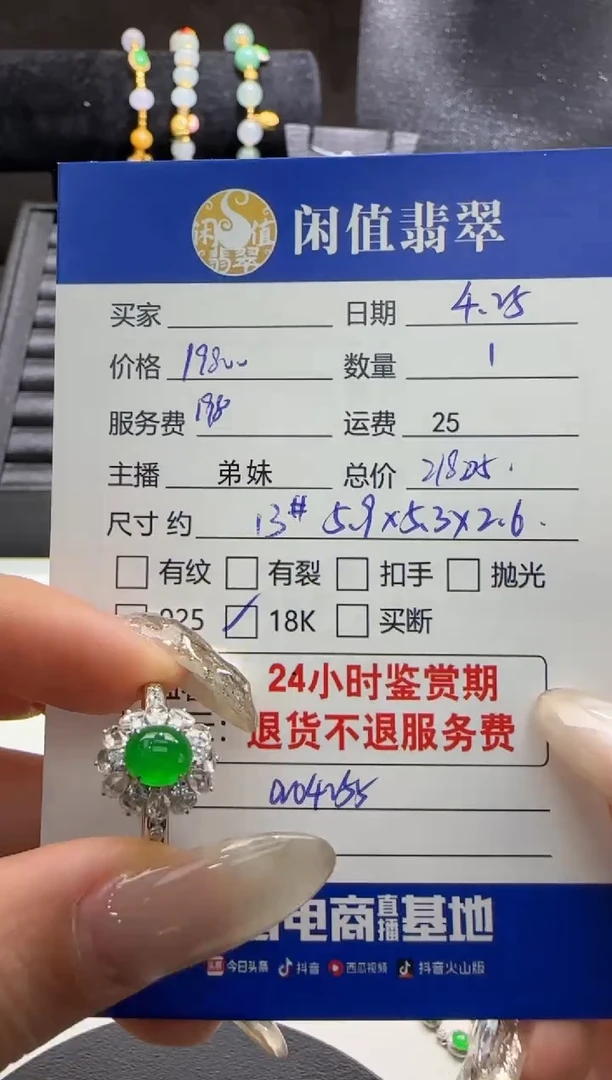 闲值翡翠
闲值翡翠
买家 日期 4.25
价格 19800 数量 1
服务费 198 运费 25
主播 弟妹 总价 21805.
尺寸 约 13# 5.9×5.3×2.6.
有纹 有裂 扣手 抛光
925 18K 买断
24小时鉴赏期
: 退货不退服务费
电商直播基地
今日头条 抖音 西瓜视频 抖音火山版